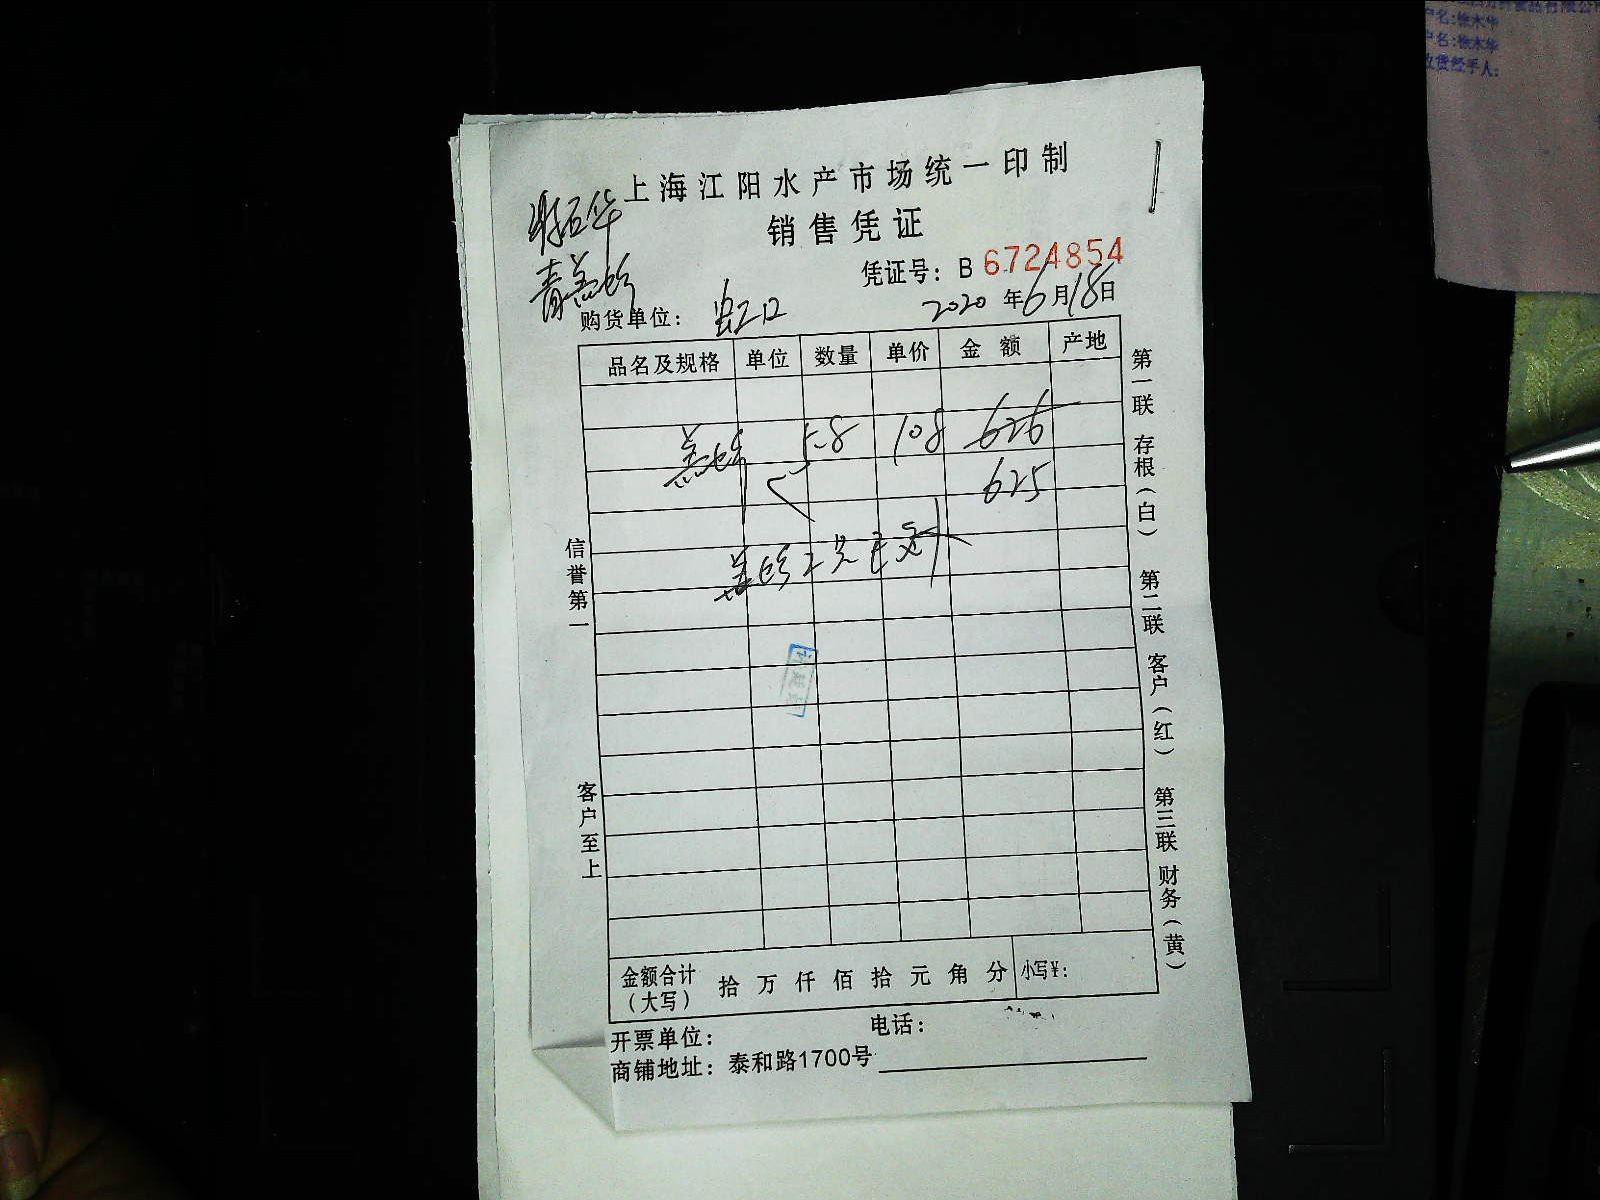 上海江阳水产市场统一印制
销售凭证
凭证号：B 6724854
购货单位：虹口
2020年6月18日
品名及规格 单位 数量 单价 金额 产地
5.8 108 626
625
信誉第一
客户至上
第一联 存根（白） 第二联 客户（红） 第三联 财务（黄）
金额合计（大写） 拾万仟佰拾元角分 小写¥：
开票单位： 电话：
商铺地址：泰和路1700号
户名:徐木华
户名:徐木华
收货经手人: